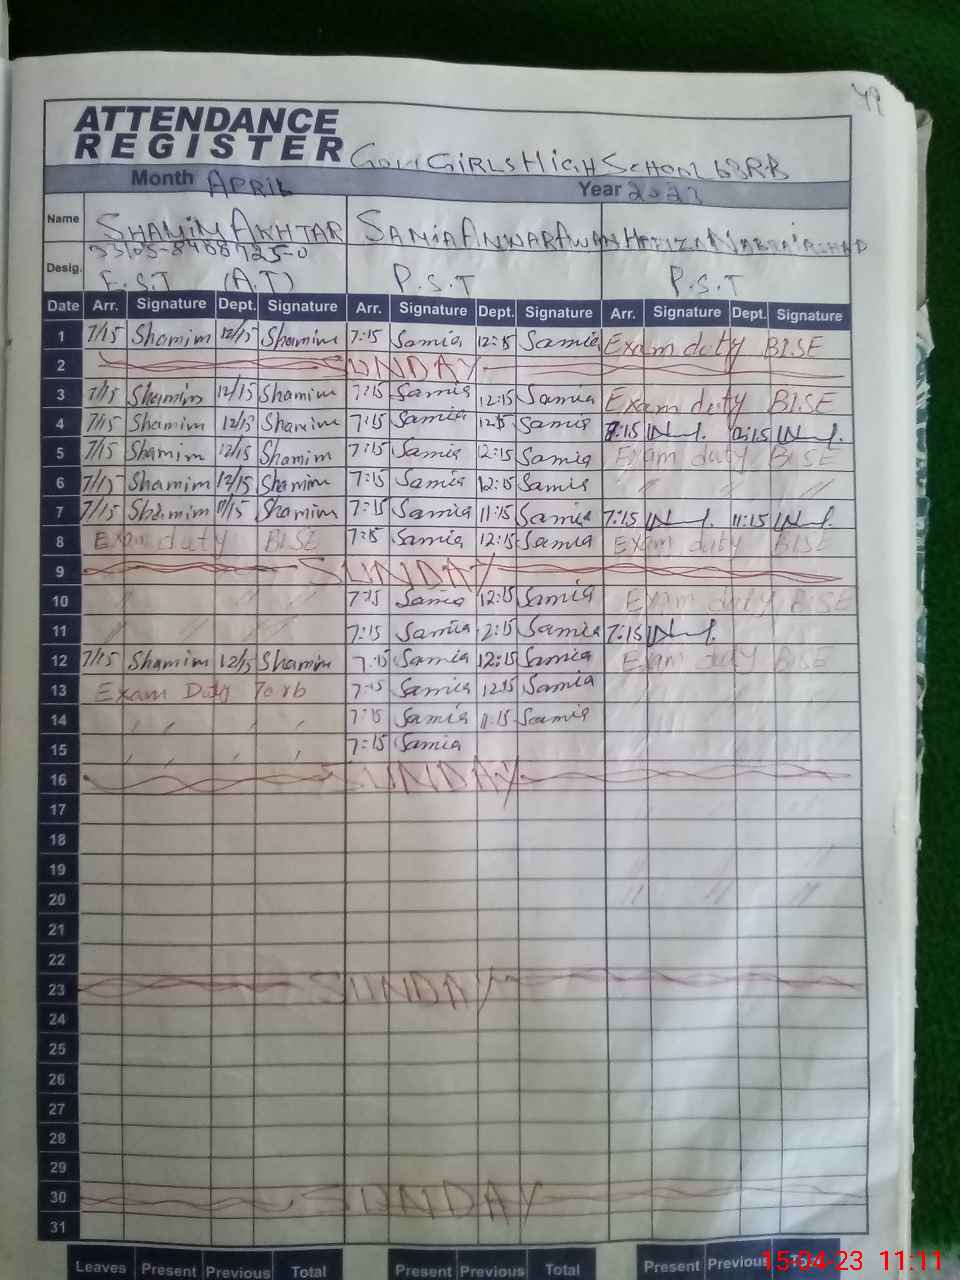 49
ATTENDANCE
REGISTER GOVT GIRLS HIGH SCHOOL 63RB
Month APRIL Year 2023
Name SHAMIM AKHTAR SAMIA ANWAR AWAN HAFIZA
33105-8408725-0
Desig. E.S.T (A.T) P.S.T P.S.T
Date Arr. Signature Dept. Signature Arr. Signature Dept. Signature Arr. Signature Dept. Signature
1 7/15 Shamim 12/15 Shamim 7:15 Samia 12:15 Samia Exam duty BISE
2 SUNDAY
3 7/15 Shamim 12/15 Shamim 7:15 Samia 12:15 Samia Exam duty BISE
4 7/15 Shamim 12/15 Shamim 7:15 Samia 12:15 Samia 7:15 12:15
5 7/15 Shamim 12/15 Shamim 7:15 Samia 12:15 Samia Exam duty BISE
6 7/15 Shamim 12/15 Shamim 7:15 Samia 12:15 Samia // // //
7 7/15 Shamim 11/15 Shamim 7:15 Samia 11:15 Samia 7:15 11:15
8 Exam duty BISE 7:15 Samia 12:15 Samia Exam duty BISE
9 SUNDAY
10 // // // 7:15 Samia 12:15 Samia Exam duty BISE
11 // // // // 7:15 Samia 12:15 Samia 7:15
12 7/15 Shamim 12/15 Shamim 7:15 Samia 12:15 Samia Exam duty BISE
13 Exam Duty 7:15 Samia 12:15 Samia
14 7:15 Samia 11:15 Samia
15 7:15 Samia
16 SUNDAY
17
18
19
20
21
22
23 SUNDAY
24
25
26
27
28
29
30 SUNDAY
31
Leaves Present Previous Total Present Previous Total Present Previous Total
15-04-23 11:11